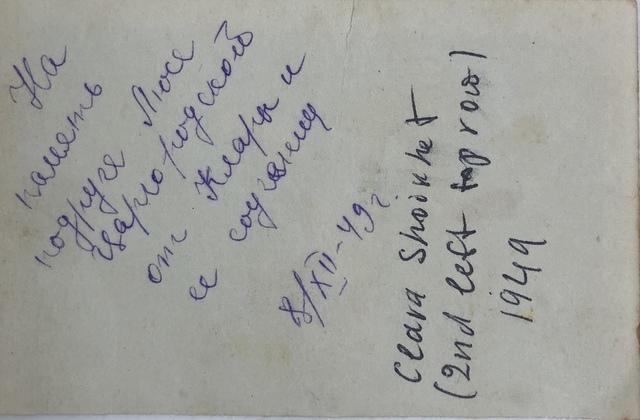 На
память
подруге Люсе
Царгородской
от Клары и
ее соучениц
8/XII-49 г.
Clara Shoikhet
(2nd left top row)
1949